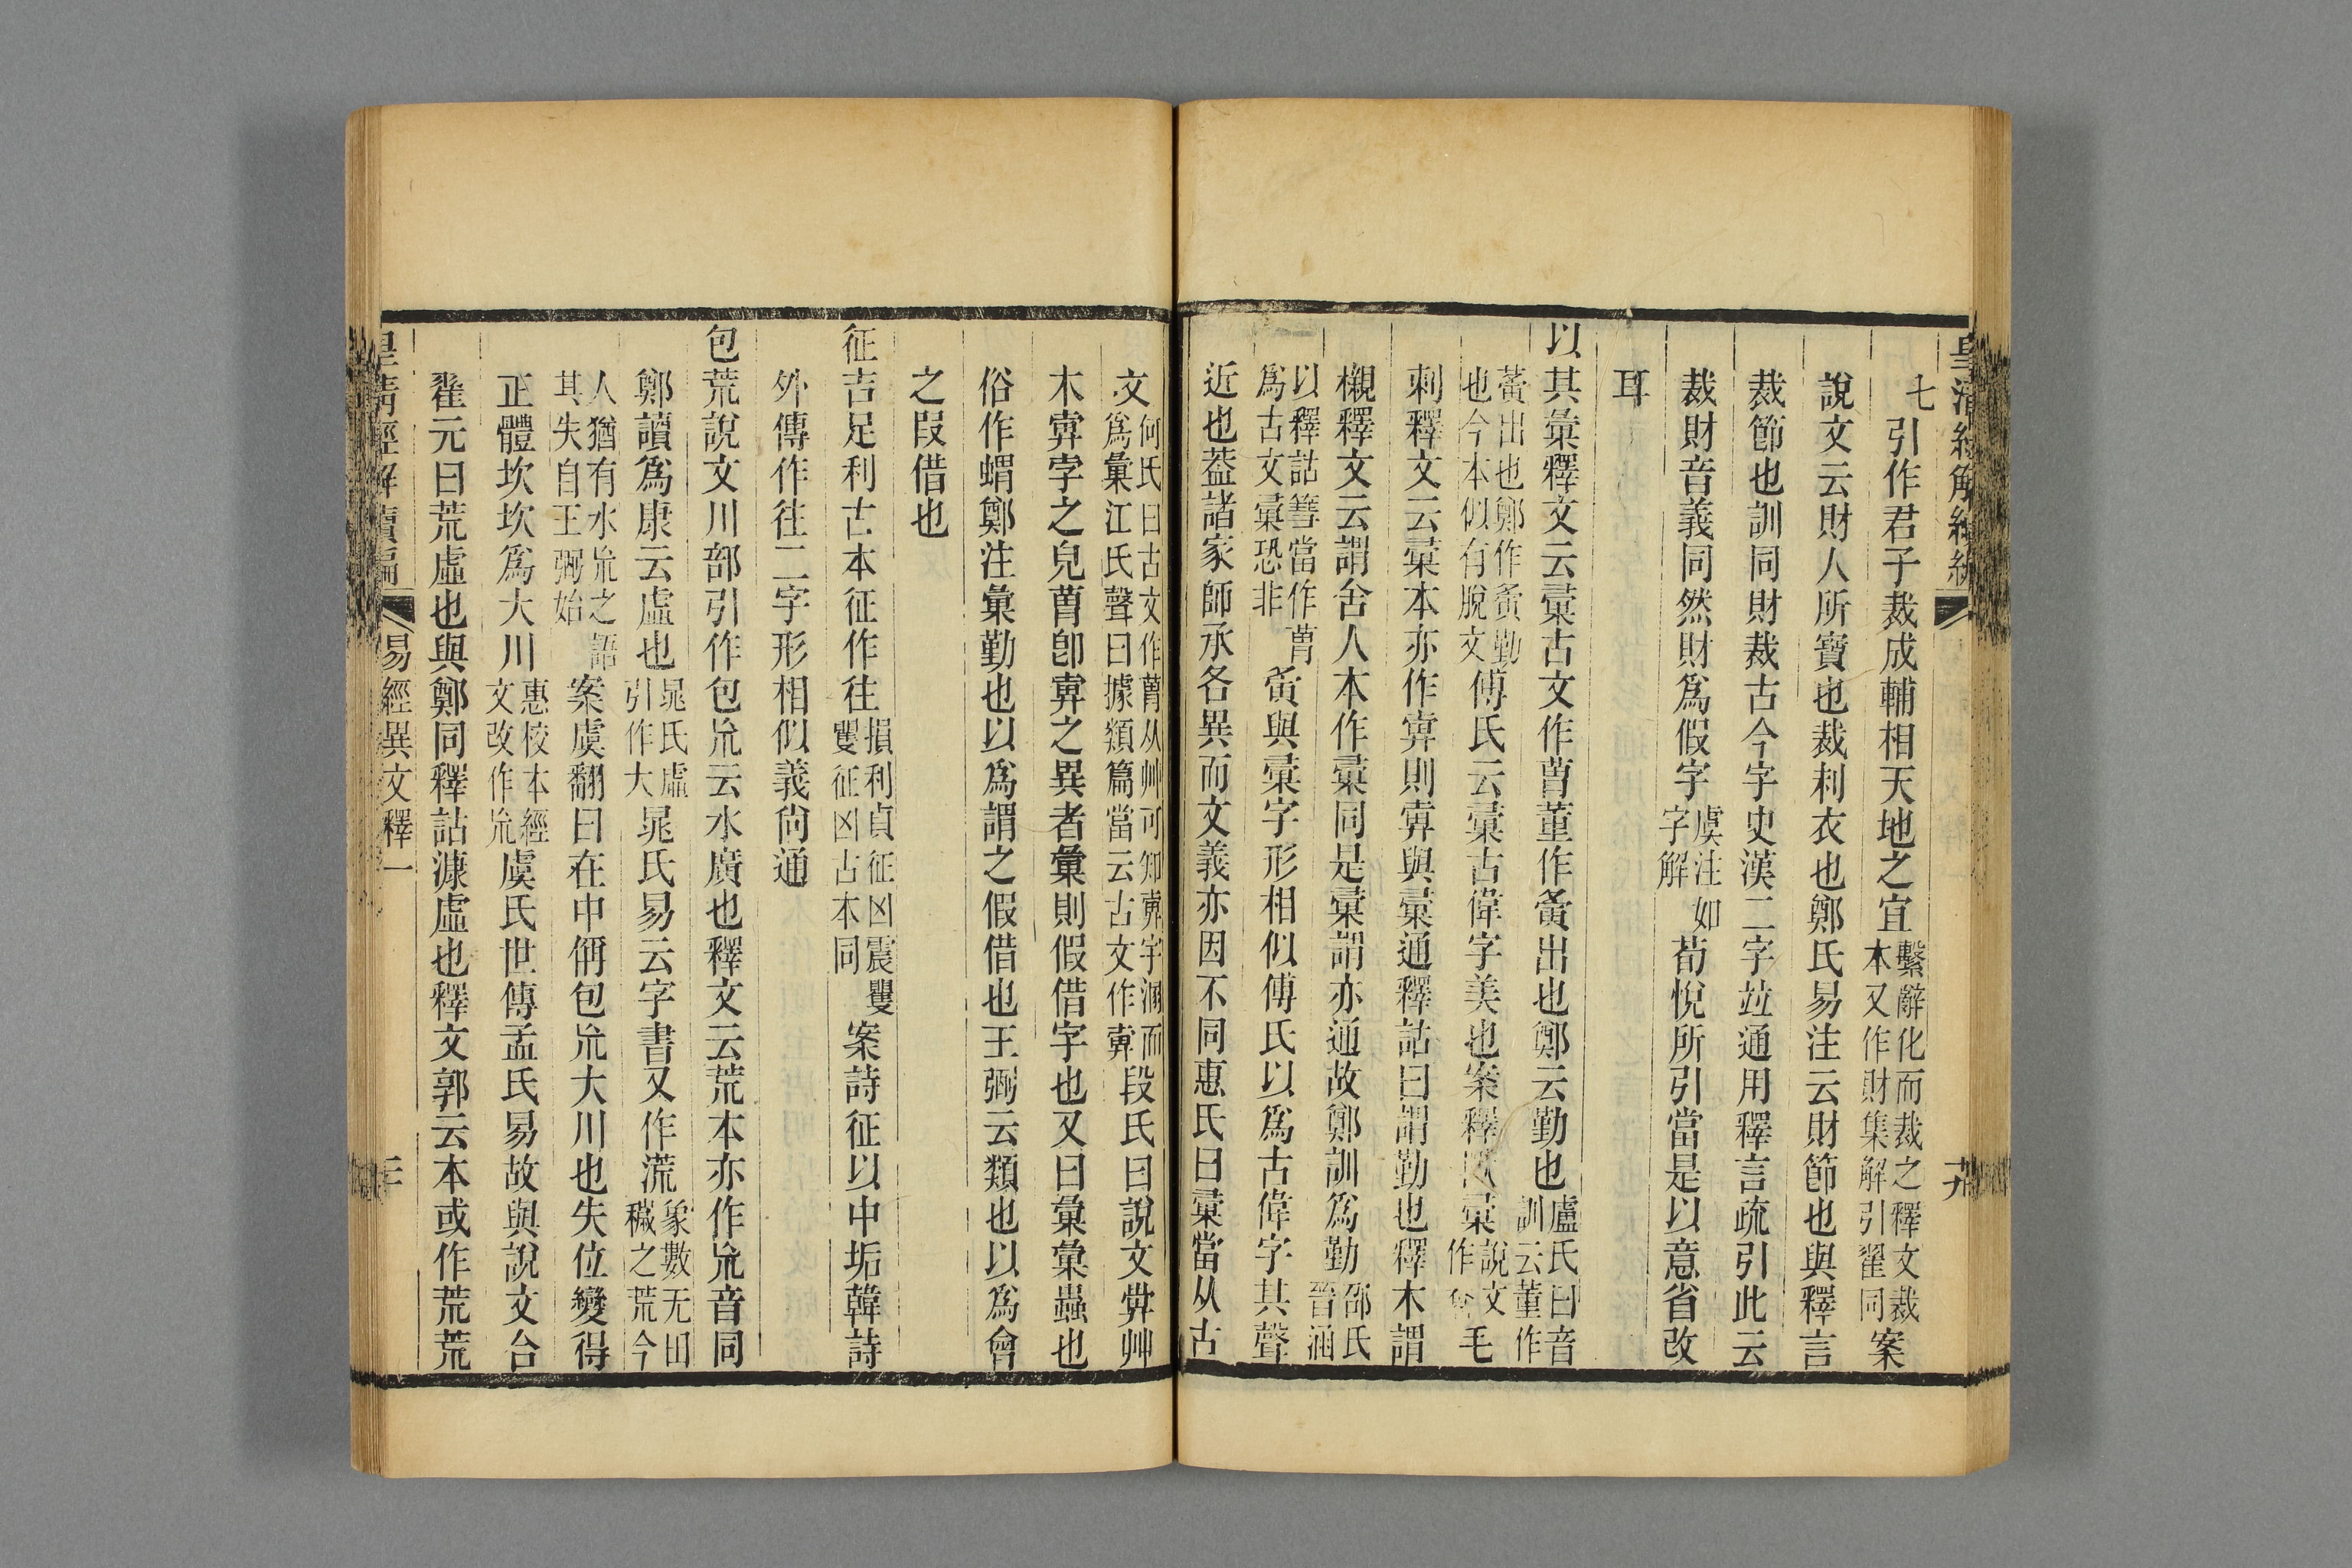 七引作君子裁成輔相天地之宜繫辭化而裁之釋文裁本又作財集解引翟同案
說文云財人所寶也裁利衣也鄭氏易注云財節也與釋言
裁節也訓同財裁古今字史漢二字竝通用釋言疏引此云
裁財音義同然財爲假字虞注如字解荀悅所引當是以意省改
耳
以其彙釋文云彙古文作䔥董作夤出也鄭云勤也盧氏曰音訓云董作
夤出也鄭作夤勤也今本似有脫文傅氏云彙古偉字美也案釋彙說文作毛
刺釋文云彙本亦作㝮則㝮與彙通釋詁曰謂勤也釋木謂
櫬釋文云謂舍人本作彙同是彙謂亦通故鄭訓爲勤邵氏晉涵
以釋詁篲當作䔥爲古文彙恐非夤與彙字形相似傅氏以爲古偉字其聲
近也葢諸家師承各異而文義亦因不同惠氏曰彙當从古
文何氏曰古文作䔥从艸可知㝮字溷而爲彙江氏聲曰據類篇當云古文作㝮段氏曰說文𢍏艸
木㝮孛之皃䔥卽㝮之異者彙則假借字也又曰彙彙蟲也
俗作蝟鄭注彙勤也以爲謂之假借也王弼云類也以爲會
之叚借也
征吉足利古本征作往損利貞征凶震䂄征凶古本同案詩征以中垢韓詩
外傳作往二字形相似義尙通
包荒說文川部引作包㠩云水廣也釋文云荒本亦作㠩音同
鄭讀爲康云虛也晁氏虛引作大晁氏易云字書又作㡛象數无田穢之荒今
人猶有水㠩之語其失自王弼始案虞翻曰在中稱包㠩大川也失位變得
正體坎坎爲大川惠校本經文改作㠩虞氏世傳孟氏易故與說文合
翟元曰荒虛也與鄭同釋詁漮虛也釋文郭云本或作荒荒
皇淸經解續編
易經異文釋一